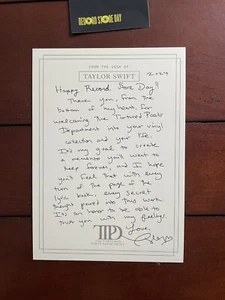 RECORD STORE DAY
FROM THE DESK OF
TAYLOR SWIFT
2024
Happy Record Store Day!
Thank you, from the
bottom of my heart, for
welcoming The Tortured Poets
Department into your vinyl
collection and your life.
It's my goal to create
a memento you'll want to
keep forever, and I hope
you'll feel that with every
of the page of the
lyric book, every secret
thought poured into this work.
It's an honor to be able to
that you with my feelings.
Love,
TTPD